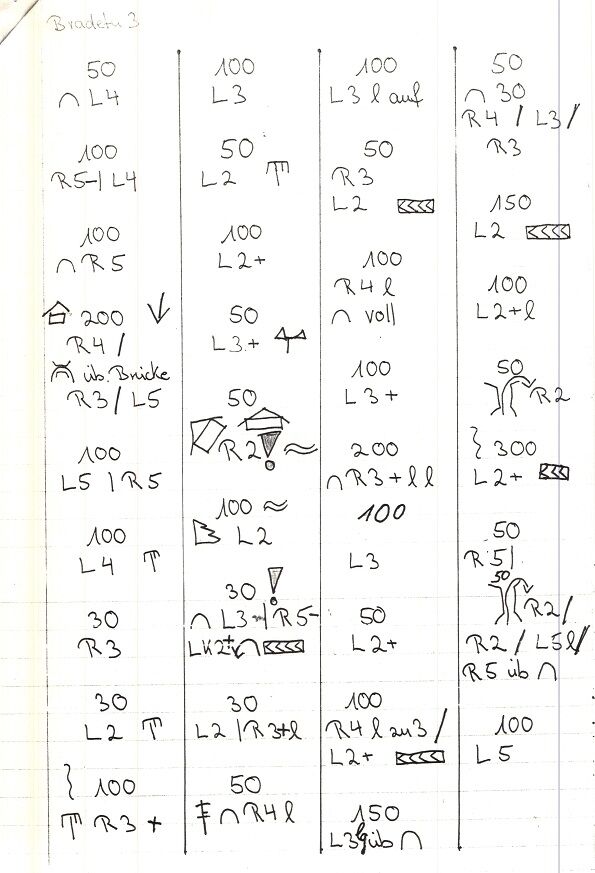 Bradetu 3
50
∩ L4
100
R5-| L4
100
∩ R5
200 ↓
R4 /
üb. Brücke
R3 / L5
100
L5 | R5
100
L4
30
R3
30
L2
100
R3 +
100
L3
50
L2
100
L2+
50
L3+
50
R2 ! ≈
100 ≈
L2
30 !
∩ L3-| R5-
∩ <<<<
30
L2 | R3+l
50
∩ R4 l
100
L3 l auf
50
R3
L2 <<<<
100
R4 l
∩ voll
100
L3 +
200
∩ R3 + l l
100
L3
50
L2+
100
R4 l zu 3 /
L2+ <<<<
150
L3 üb ∩
50
∩ 30
R4 / L3 /
R3
150
L2 <<<<
100
L2+l
50
R2
300
L2+ <<<
50
R5|
50
R2 /
R2 / L5l /
R5 üb ∩
100
L5